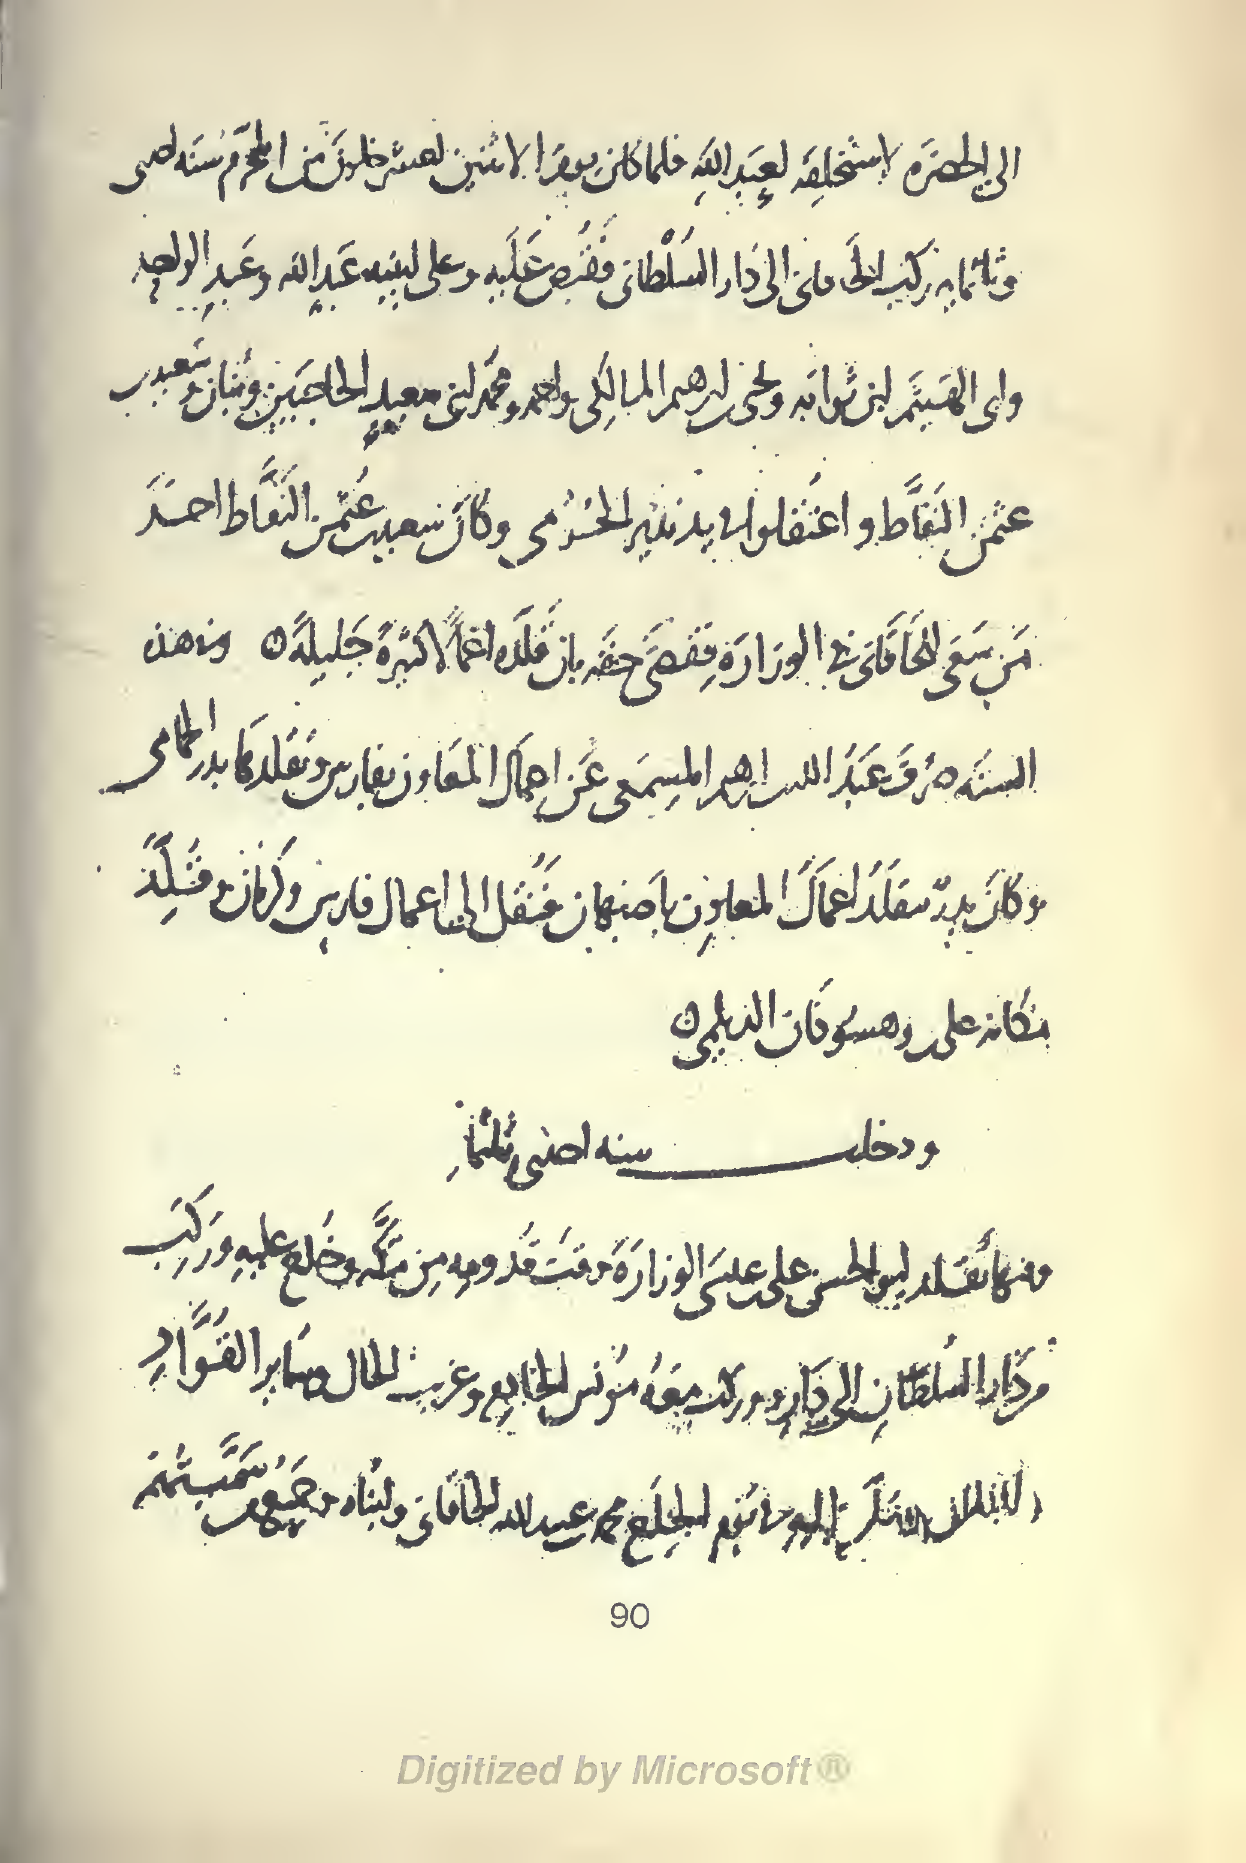 الى الحضرة لاستخلفه لعبد الله فلما كان يوم الاثنين لعشر خلون من المحرم سنه احدى
وثلثمايه ركب الخاقانى الى دار السلطان فقُبِض عَلَيه وعلى ابنيه عبد الله وعبد الواحد
وابى الهيثم ابن ثوابه ويحيى بن ابرهيم المالكى واحمد ومحمد ابنى سعيد الحاجبين وبنان وسعيد بن
عثمن النفاط واعتقلوا فى يد نذير الحرمى وكان سعيد بن عثمن النفاط احد
مَن سَعَى للخاقانى فى الوزارة فقضى حقه بان قلده اعمالا كثيرةً جَليلةً ه وفى هذه
السنه صُرِفَ عَبدُ الله بن ابرهيم المسمعى عَن اعمال المعاون بفارس وتقلدها بدر الحمامى
وكانَ بدر يتقلد اعمال المعاون باصبهان فنقل الى اعمال فارس وكرمان وقُلِّدَ
مكانه على بن وهسوذان الديلمى ه
ودخلت سنه احدى وثلثمايه
وفيها تقلد ابو الحسن على بن عيسى الوزارة وقت قدومه من مكه وخُلع عليه ورَكِبَ
من دار السُلطان الى داره وركب معه مؤنس الخادم وغريب الخال وسَاير القُوَّادِ
محمد بن عبيد الله الخاقانى وابناه وجميع
90
Digitized by Microsoft®